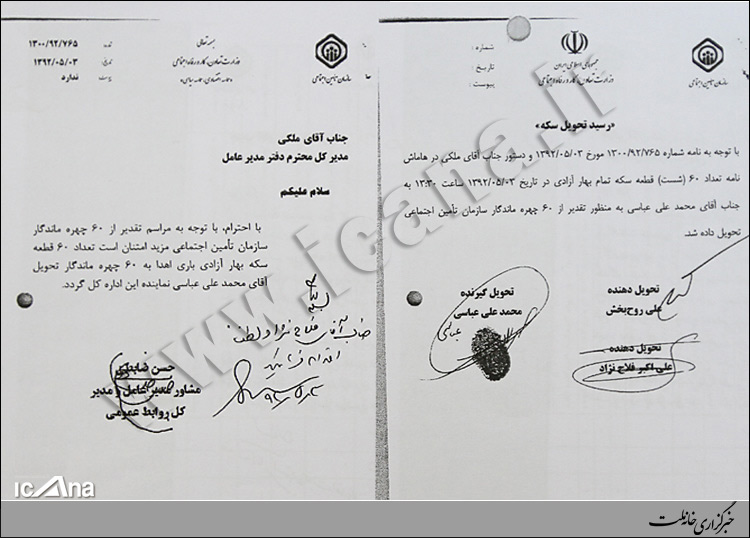 جمهوری اسلامی ایران
وزارت تعاون، کار و رفاه اجتماعی
سازمان تامین اجتماعی
شماره :
تاریخ :
پیوست :
«رسید تحویل سکه»
با توجه به نامه شماره ۱۳۰۰/۹۲/۷۶۵ مورخ ۱۳۹۲/۰۵/۰۳ و دستور جناب آقای ملکی در هاماش
نامه تعداد ۶۰ (شست) قطعه سکه تمام بهار آزادی در تاریخ ۱۳۹۲/۰۵/۰۳ ساعت ۱۳:۳۰ به
جناب آقای محمد علی عباسی به منظور تقدیر از ۶۰ چهره ماندگار سازمان تأمین اجتماعی
تحویل داده شد.
تحویل دهنده
علی روح‌بخش
تحویل گیرنده
محمد علی عباسی
عباسی
تحویل دهنده
علی اکبر فلاح نژاد
بسمه تعالی
وزارت تعاون، کار و رفاه اجتماعی
سازمان تامین اجتماعی
۱۳۰۰/۹۲/۷۶۵
۱۳۹۲/۰۵/۰۳
ندارد
جناب آقای ملکی
مدیر کل محترم دفتر مدیر عامل
سلام علیکم
با احترام، با توجه به مراسم تقدیر از ۶۰ چهره ماندگار
سازمان تأمین اجتماعی مزید امتنان است تعداد ۶۰ قطعه
سکه بهار آزادی باری اهدا به ۶۰ چهره ماندگار تحویل
آقای محمد علی عباسی نماینده این اداره کل گردد.
جناب آقای فلاح نژاد لطفا
حسن
مشاور مدیر عامل و مدیر
کل روابط عمومی
www.icana.ir
icana
خبرگزاری خانه ملت